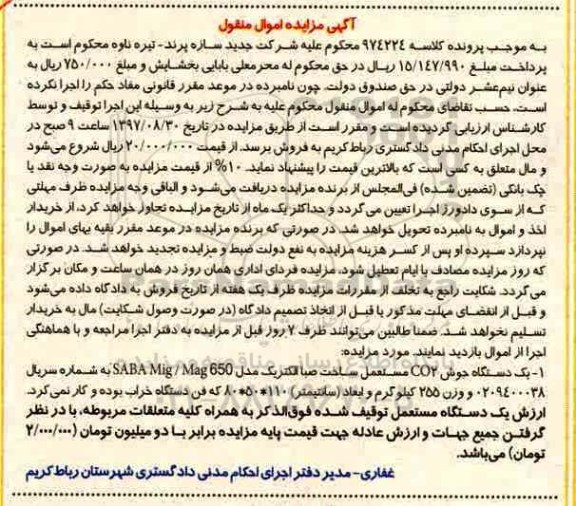 آگهی مزایده اموال منقول
به موجب پرونده کلاسه ۹۷۴۲۲۴ محکوم علیه شرکت جدید سازه پرند - تیره ناوه محکوم است به
پرداخت مبلغ ۱۵/۱۴۷/۹۹۰ ریال در حق محکوم له محرمعلی بابایی بخشایش و مبلغ ۷۵۰/۰۰۰ ریال به
عنوان نیم‌عشر دولتی در حق صندوق دولت. چون نامبرده در موعد مقرر قانونی مفاد حکم را اجرا نکرده
است، حسب تقاضای محکوم له اموال منقول محکوم علیه به شرح زیر به وسیله این اجرا توقیف و توسط
کارشناس ارزیابی گردیده است و مقرر است از طریق مزایده در تاریخ ۱۳۹۷/۰۸/۳۰ ساعت ۹ صبح در
محل اجرای احکام مدنی دادگستری رباط کریم به فروش برسد. از قیمت ۲۰/۰۰۰/۰۰۰ ریال شروع می‌شود
و مال متعلق به کسی است که بالاترین قیمت را پیشنهاد نماید. ۱۰% از قیمت مزایده به صورت وجه نقد یا
چک بانکی (تضمین شده) فی‌المجلس از برنده مزایده دریافت می‌شود و الباقی وجه مزایده ظرف مهلتی
که از سوی دادورز اجرا تعیین می گردد و حداکثر یک ماه از تاریخ مزایده تجاوز نخواهد کرد، از خریدار
اخذ و اموال به نامبرده تحویل خواهد شد. در صورتی که برنده مزایده در موعد مقرر بقیه بهای اموال را
نپردازد سپرده او پس از کسر هزینه مزایده به نفع دولت ضبط و مزایده تجدید خواهد شد. در صورتی
که روز مزایده مصادف با ایام تعطیل شود، مزایده فردای اداری همان روز در همان ساعت و مکان برگزار
می گردد. شکایت راجع به تخلف از مقررات مزایده ظرف یک هفته از تاریخ فروش به دادگاه داده می‌شود
و قبل از انقضای مهلت مذکور یا قبل از اتخاذ تصمیم دادگاه (در صورت وصول شکایت) مال به خریدار
تسلیم نخواهد شد. ضمنا طالبین می‌توانند ظرف ۷ روز قبل از مزایده به دفتر اجرا مراجعه و با هماهنگی
اجرا از اموال بازدید نمایند. مورد مزایده:
۱- یک دستگاه جوش CO۲ مستعمل ساخت صبا الکتریک مدل SABA Mig / Mag 650 به شماره سریال
۰۲۰۹۴۰۰۰۳۸ و وزن ۲۵۵ کیلو گرم و ابعاد (سانتیمتر) ۱۱۰*۵۰*۸۰ که فن دستگاه خراب بوده و کار نمی‌کرد.
ارزش یک دستگاه مستعمل توقیف شده فوق‌الذکر به همراه کلیه متعلقات مربوطه، با در نظر
گرفتن جمیع جهات و ارزش عادله جهت قیمت پایه مزایده برابر با دو میلیون تومان (۲/۰۰۰/۰۰۰
تومان) می‌باشد.
غفاری - مدیر دفتر اجرای احکام مدنی دادگستری شهرستان رباط کریم